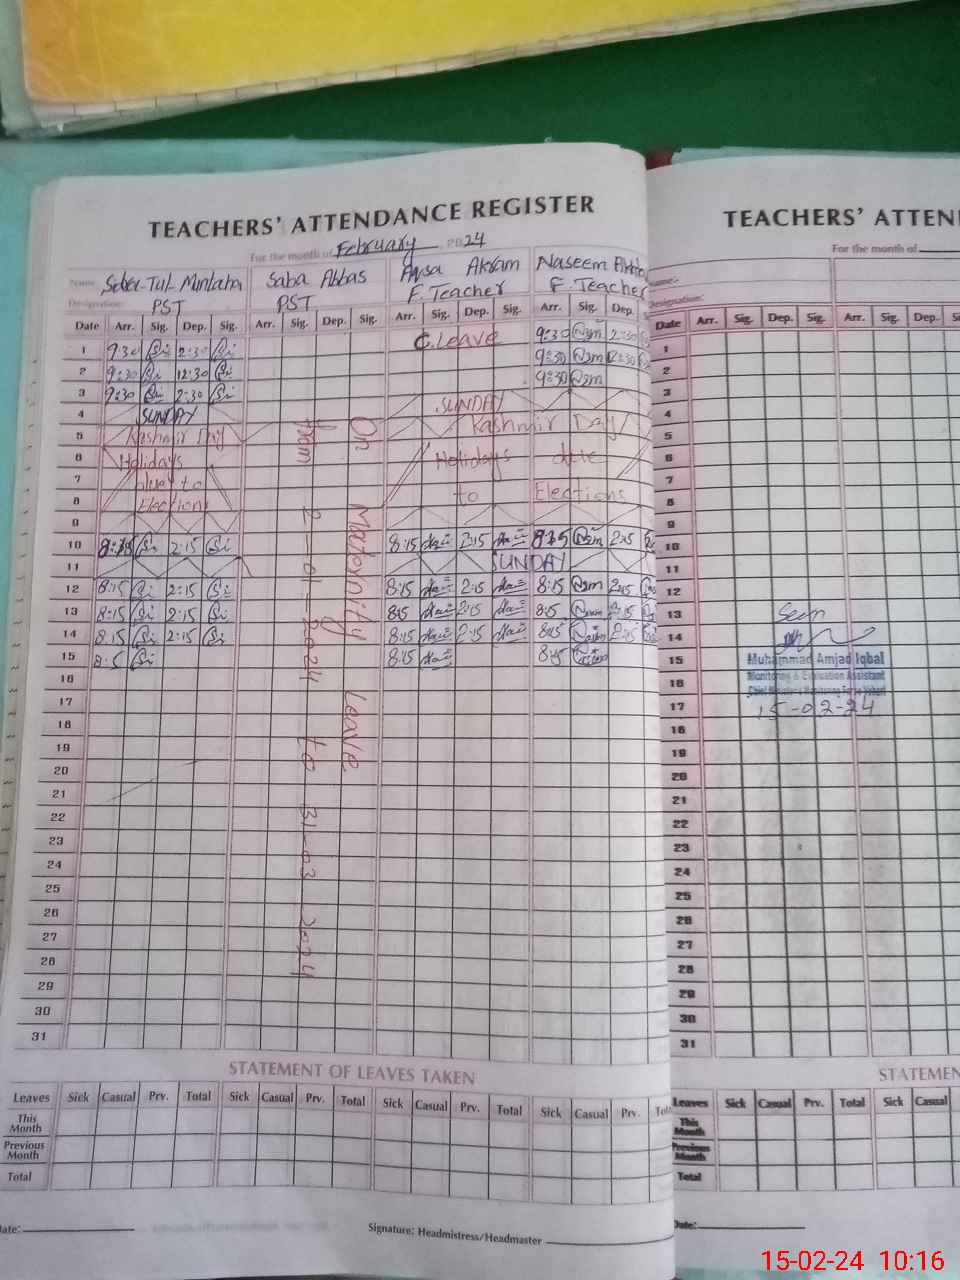 TEACHERS' ATTENDANCE REGISTER
For the month of February, 2024
Name Saba Abbas Akram Naseem
Designation: PST PST F. Teacher F. Teacher
Date Arr. Sig. Dep. Sig. Arr. Sig. Dep. Sig. Arr. Sig. Dep. Sig. Arr. Sig. Dep.
1 9:30 2:30 C. Leave 9:30 2:30
2 9:30 12:30 9:30 12:30
3 9:30 2:30 9:30
4 SUNDAY SUNDAY
5 Kashmir Day Kashmir Day
6 Holidays Holidays due
7 due to
8 Elections to Elections
9
10 8:15 2:15 8:15 2:15 8:15 2:15
11 SUNDAY
12 8:15 2:15 8:15 2:15 8:15 2:15
13 8:15 2:15 8:15 2:15 8:15 2:15
14 8:15 2:15 8:15 2:15 8:15 2:15
15 8:15 8:15
16
17
18
19
20
21
22
23
24
25
26
27
28
29
30
31
On Maternity Leave
from 2-01-2024 to 31-03-2024
STATEMENT OF LEAVES TAKEN
Leaves Sick Casual Prv. Total Sick Casual Prv. Total Sick Casual Prv. Total Sick Casual Prv.
This Month
Previous Month
Total
Date:
Signature: Headmistress/Headmaster
TEACHERS' ATTEN
For the month of
Name:-
Designation:
Date Arr. Sig. Dep. Sig. Arr. Sig. Dep.
1
2
3
4
5
6
7
8
9
10
11
12
13
14
15
16
17
18
19
20
21
22
23
24
25
26
27
28
29
30
31
Seen
Muhammad Amjad Iqbal
Monitoring & Evaluation Assistant
Chief Minister's Monitoring Force Vehari
15-02-24
STATEMEN
Leaves Sick Casual Prv. Total Sick Casual
This Month
Previous Month
Total
Date:
15-02-24 10:16